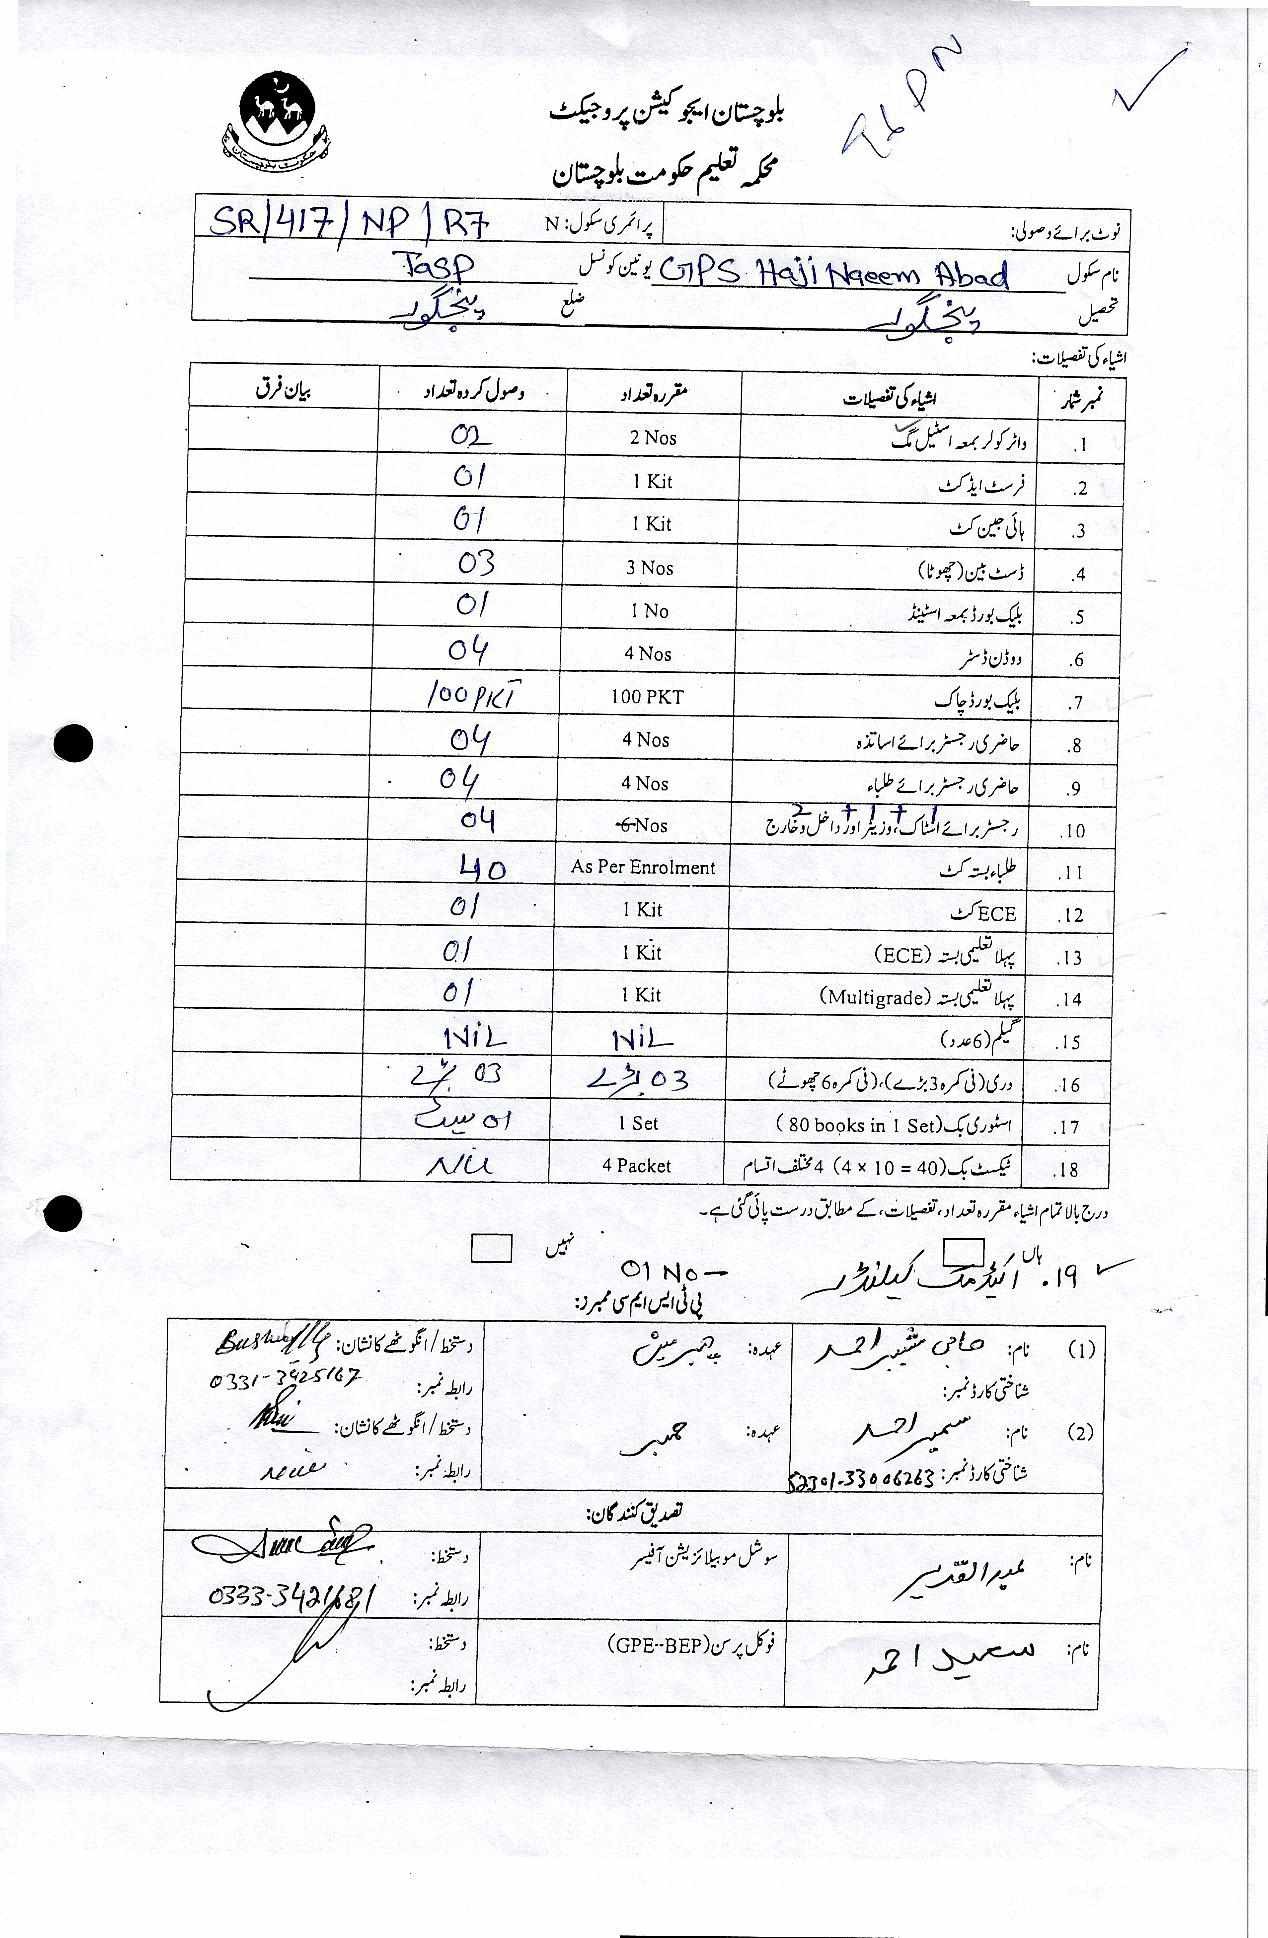 بلوچستان ایجوکیشن پروجیکٹ
محکمہ تعلیم حکومت بلوچستان
نوٹ برائے وصولی: پرائمری سکول: N SR/417/NP/R7
نام سکول GPS Haji Naeem Abad یونین کونسل Tasp
تحصیل پنجگور ضلع پنجگور
اشیاء کی تفصیلات:
نمبر شمار اشیاء کی تفصیلات مقررہ تعداد وصول کردہ تعداد بیان فرق
1. واٹر کولر بمعہ اسٹیل مگ 2 Nos 02
2. فرسٹ ایڈ کٹ 1 Kit 01
3. ہائی جین کٹ 1 Kit 01
4. ڈسٹ بین (چھوٹا) 3 Nos 03
5. بلیک بورڈ بمعہ اسٹینڈ 1 No 01
6. ووڈن ڈسٹر 4 Nos 04
7. بلیک بورڈ چاک 100 PKT 100 PKT
8. حاضری رجسٹر برائے اساتذہ 4 Nos 04
9. حاضری رجسٹر برائے طلباء 4 Nos 04
10. رجسٹر برائے اسٹاک، وزیٹر اور داخل و خارج 6 Nos 04
11. طلباء بستہ کٹ As Per Enrolment 40
12. ECE کٹ 1 Kit 01
13. پہلا تعلیمی بستہ (ECE) 1 Kit 01
14. پہلا تعلیمی بستہ (Multigrade) 1 Kit 01
15. گلیم (6 عدد) NiL NiL
16. دری (فی کمرہ 3 بڑے)، (فی کمرہ 6 چھوٹے) 03 بڑے 03 بڑے
17. اسٹوری بک (80 books in 1 Set) 1 Set 01 سیٹ
18. ٹیکسٹ بک (4 × 10 = 40) 4 مختلف اقسام 4 Packet Nil
درج بالا تمام اشیاء مقررہ تعداد، تفصیلات، کے مطابق درست پائی گئی ہے۔
ہاں نہیں
19. اکیڈمک کیلنڈر 01 No
پی ٹی ایس ایم سی ممبرز:
(1) نام: حاجی شبیر احمد عہدہ: چیئرمین دستخط/انگوٹھے کا نشان:
شناختی کارڈ نمبر: رابطہ نمبر: 0331-3925167
(2) نام: سمیر احمد عہدہ: ممبر دستخط/انگوٹھے کا نشان:
شناختی کارڈ نمبر: 52301-33006263 رابطہ نمبر:
تصدیق کنندگان:
نام: عبدالقدیر سوشل موبیلائزیشن آفیسر دستخط:
رابطہ نمبر: 0333-3421681
نام: سعید احمد فوکل پرسن (GPE--BEP) دستخط:
رابطہ نمبر: